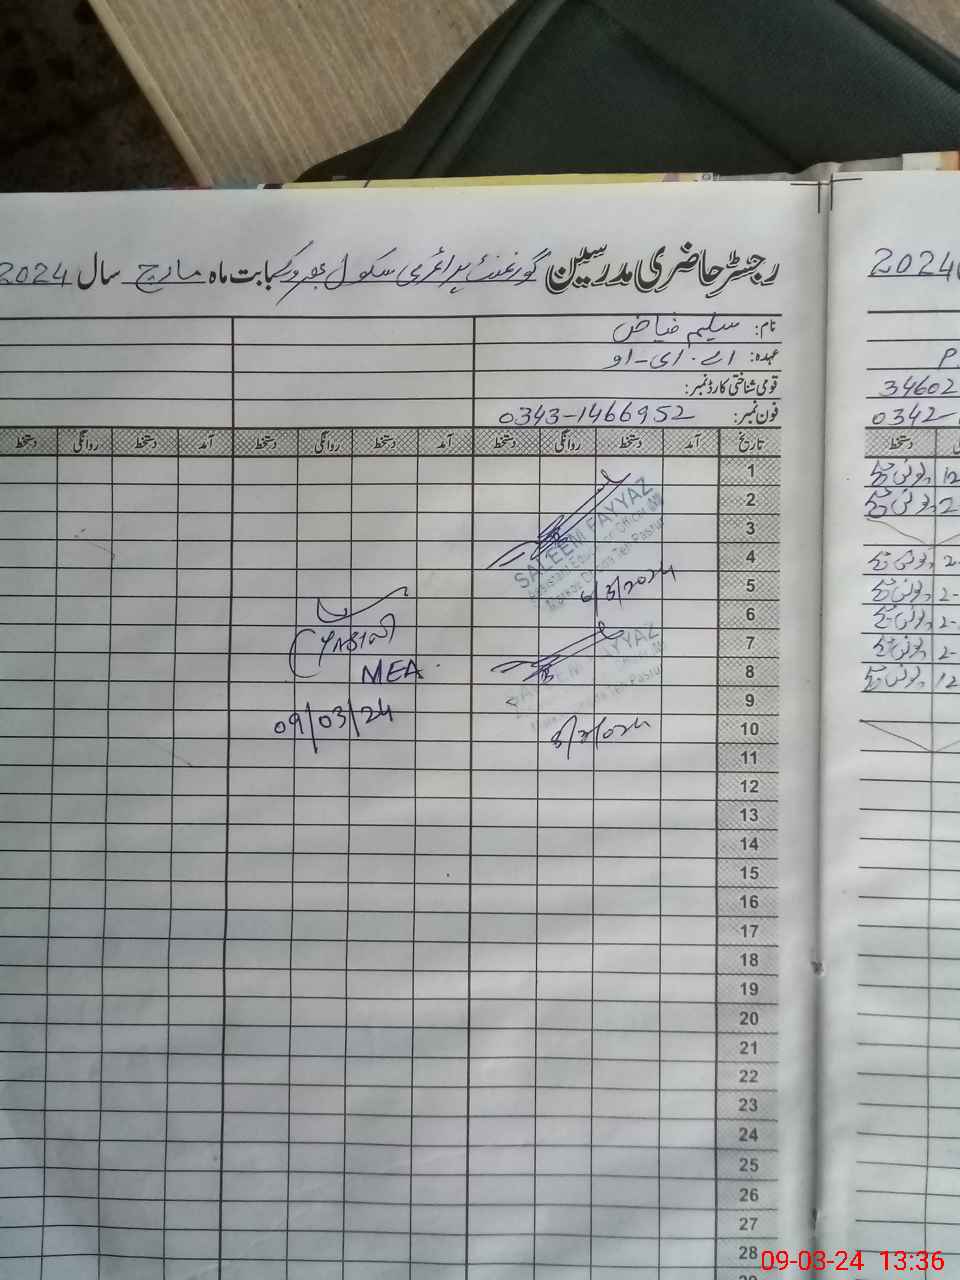 رجسٹر حاضری مدرسین گورنمنٹ پرائمری سکول بابت ماہ مارچ سال 2024
نام: سلیم فیاض
عہدہ: اے۔ای۔او
قومی شناختی کارڈ نمبر:
فون نمبر: 0343-1466952
تاریخ آمد دستخط روانگی دستخط آمد دستخط روانگی دستخط آمد دستخط روانگی دستخط
1
2
3
4
5
6
7
8
9
10
11
12
13
14
15
16
17
18
19
20
21
22
23
24
25
26
27
28
SALEEM FAYYAZ
Assistant Education Officer (M)
Teh Pasrur
6/3/2024
SALEEM FAYYAZ
Teh Pasrur
MEA
09/03/24
2024
P.
34602
0342-
دستخط
12
2-
2-
2-
2-
2-
12
09-03-24 13:36